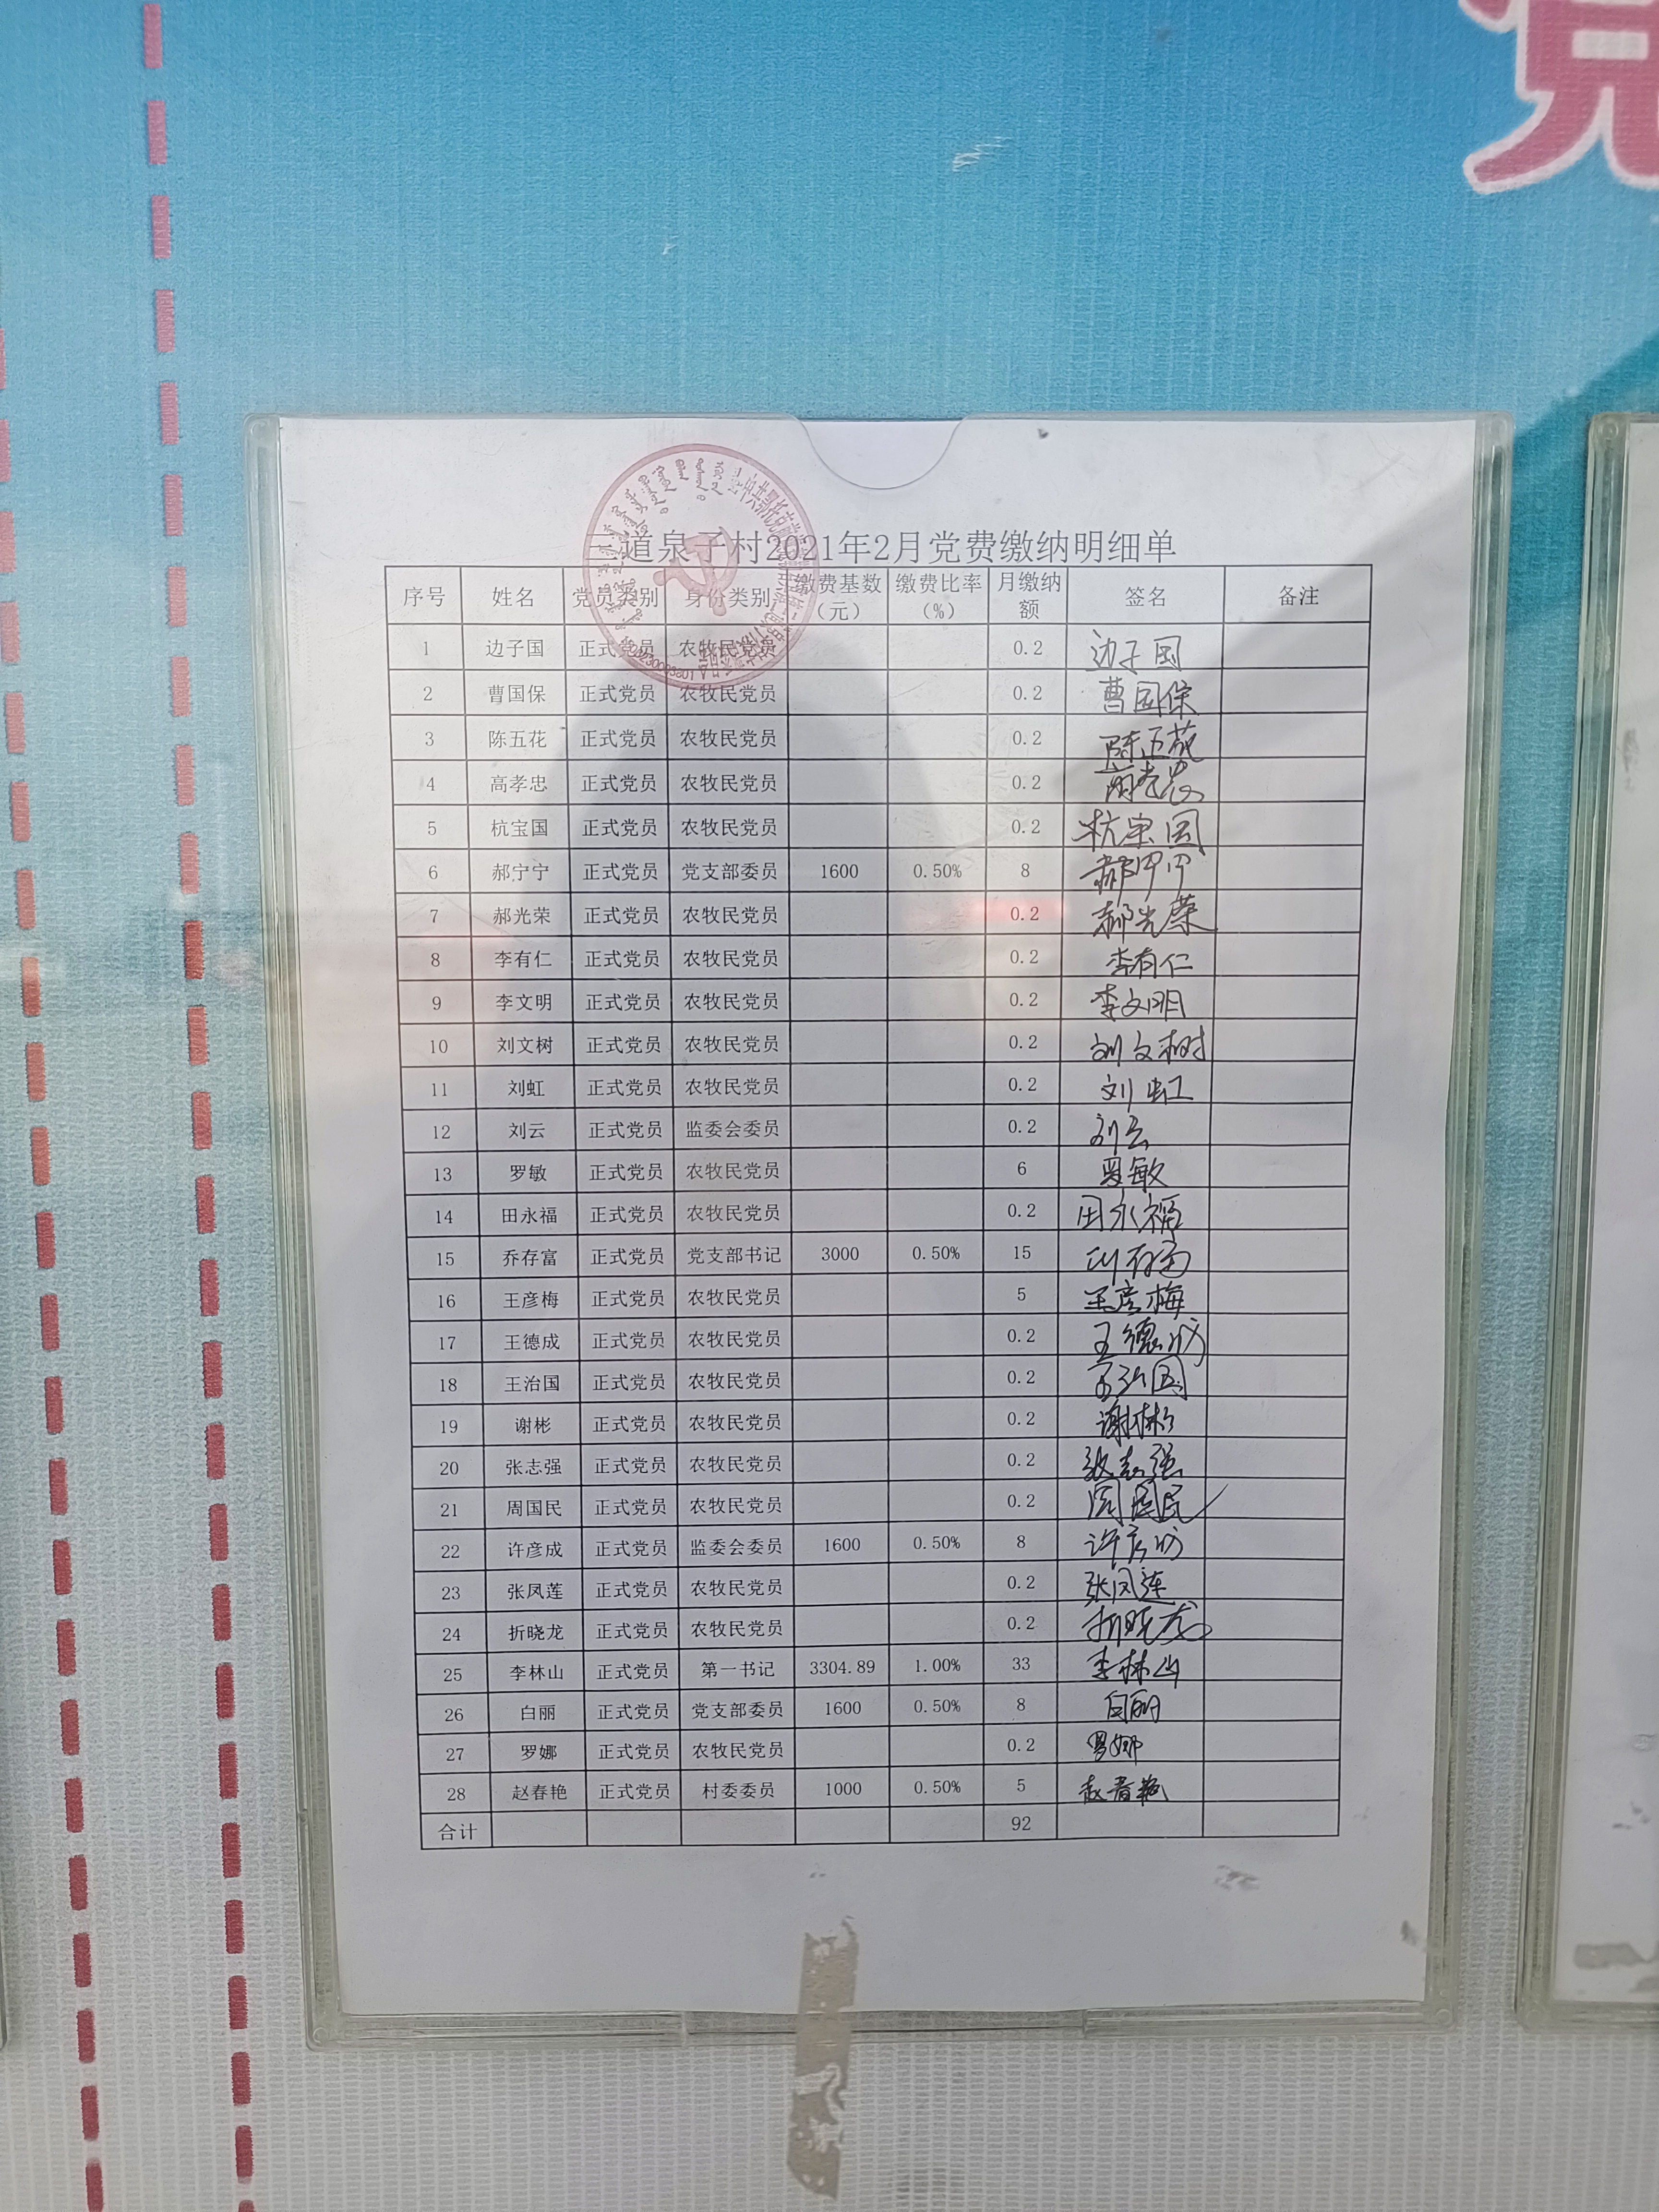 党
三道泉子村2021年2月党费缴纳明细单
序号 姓名 党员类别 身份类别 缴费基数(元) 缴费比率(%) 月缴纳额 签名 备注
1 边子国 正式党员 农牧民党员 0.2 边子国
2 曹国保 正式党员 农牧民党员 0.2 曹国保
3 陈五花 正式党员 农牧民党员 0.2 陈五花
4 高孝忠 正式党员 农牧民党员 0.2 高孝忠
5 杭宝国 正式党员 农牧民党员 0.2 杭宝国
6 郝宁宁 正式党员 党支部委员 1600 0.50% 8 郝宁宁
7 郝光荣 正式党员 农牧民党员 0.2 郝光荣
8 李有仁 正式党员 农牧民党员 0.2 李有仁
9 李文明 正式党员 农牧民党员 0.2 李文明
10 刘文树 正式党员 农牧民党员 0.2 刘文树
11 刘虹 正式党员 农牧民党员 0.2 刘虹
12 刘云 正式党员 监委会委员 0.2 刘云
13 罗敏 正式党员 农牧民党员 6 罗敏
14 田永福 正式党员 农牧民党员 0.2 田永福
15 乔存富 正式党员 党支部书记 3000 0.50% 15 乔存富
16 王彦梅 正式党员 农牧民党员 5 王彦梅
17 王德成 正式党员 农牧民党员 0.2 王德成
18 王治国 正式党员 农牧民党员 0.2 王治国
19 谢彬 正式党员 农牧民党员 0.2 谢彬
20 张志强 正式党员 农牧民党员 0.2 张志强
21 周国民 正式党员 农牧民党员 0.2 周国民
22 许彦成 正式党员 监委会委员 1600 0.50% 8 许彦成
23 张凤莲 正式党员 农牧民党员 0.2 张凤莲
24 折晓龙 正式党员 农牧民党员 0.2 折晓龙
25 李林山 正式党员 第一书记 3304.89 1.00% 33 李林山
26 白丽 正式党员 党支部委员 1600 0.50% 8 白丽
27 罗娜 正式党员 农牧民党员 0.2 罗娜
28 赵春艳 正式党员 村委委员 1000 0.50% 5 赵春艳
合计 92